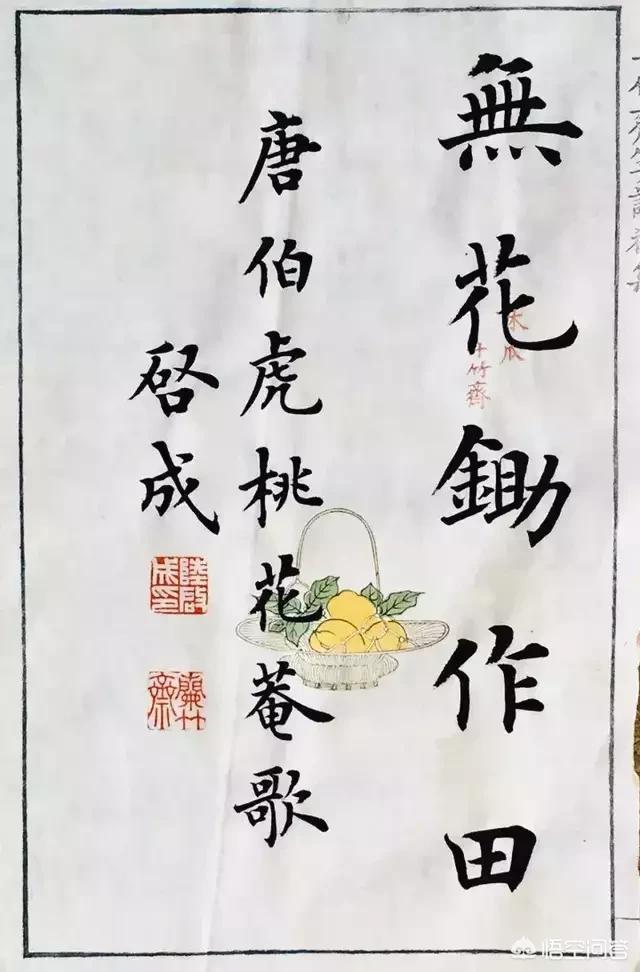 無花鋤作田
唐伯虎桃花菴歌
啓成
木瓜
十竹齋
陸啓成印
悟空问答